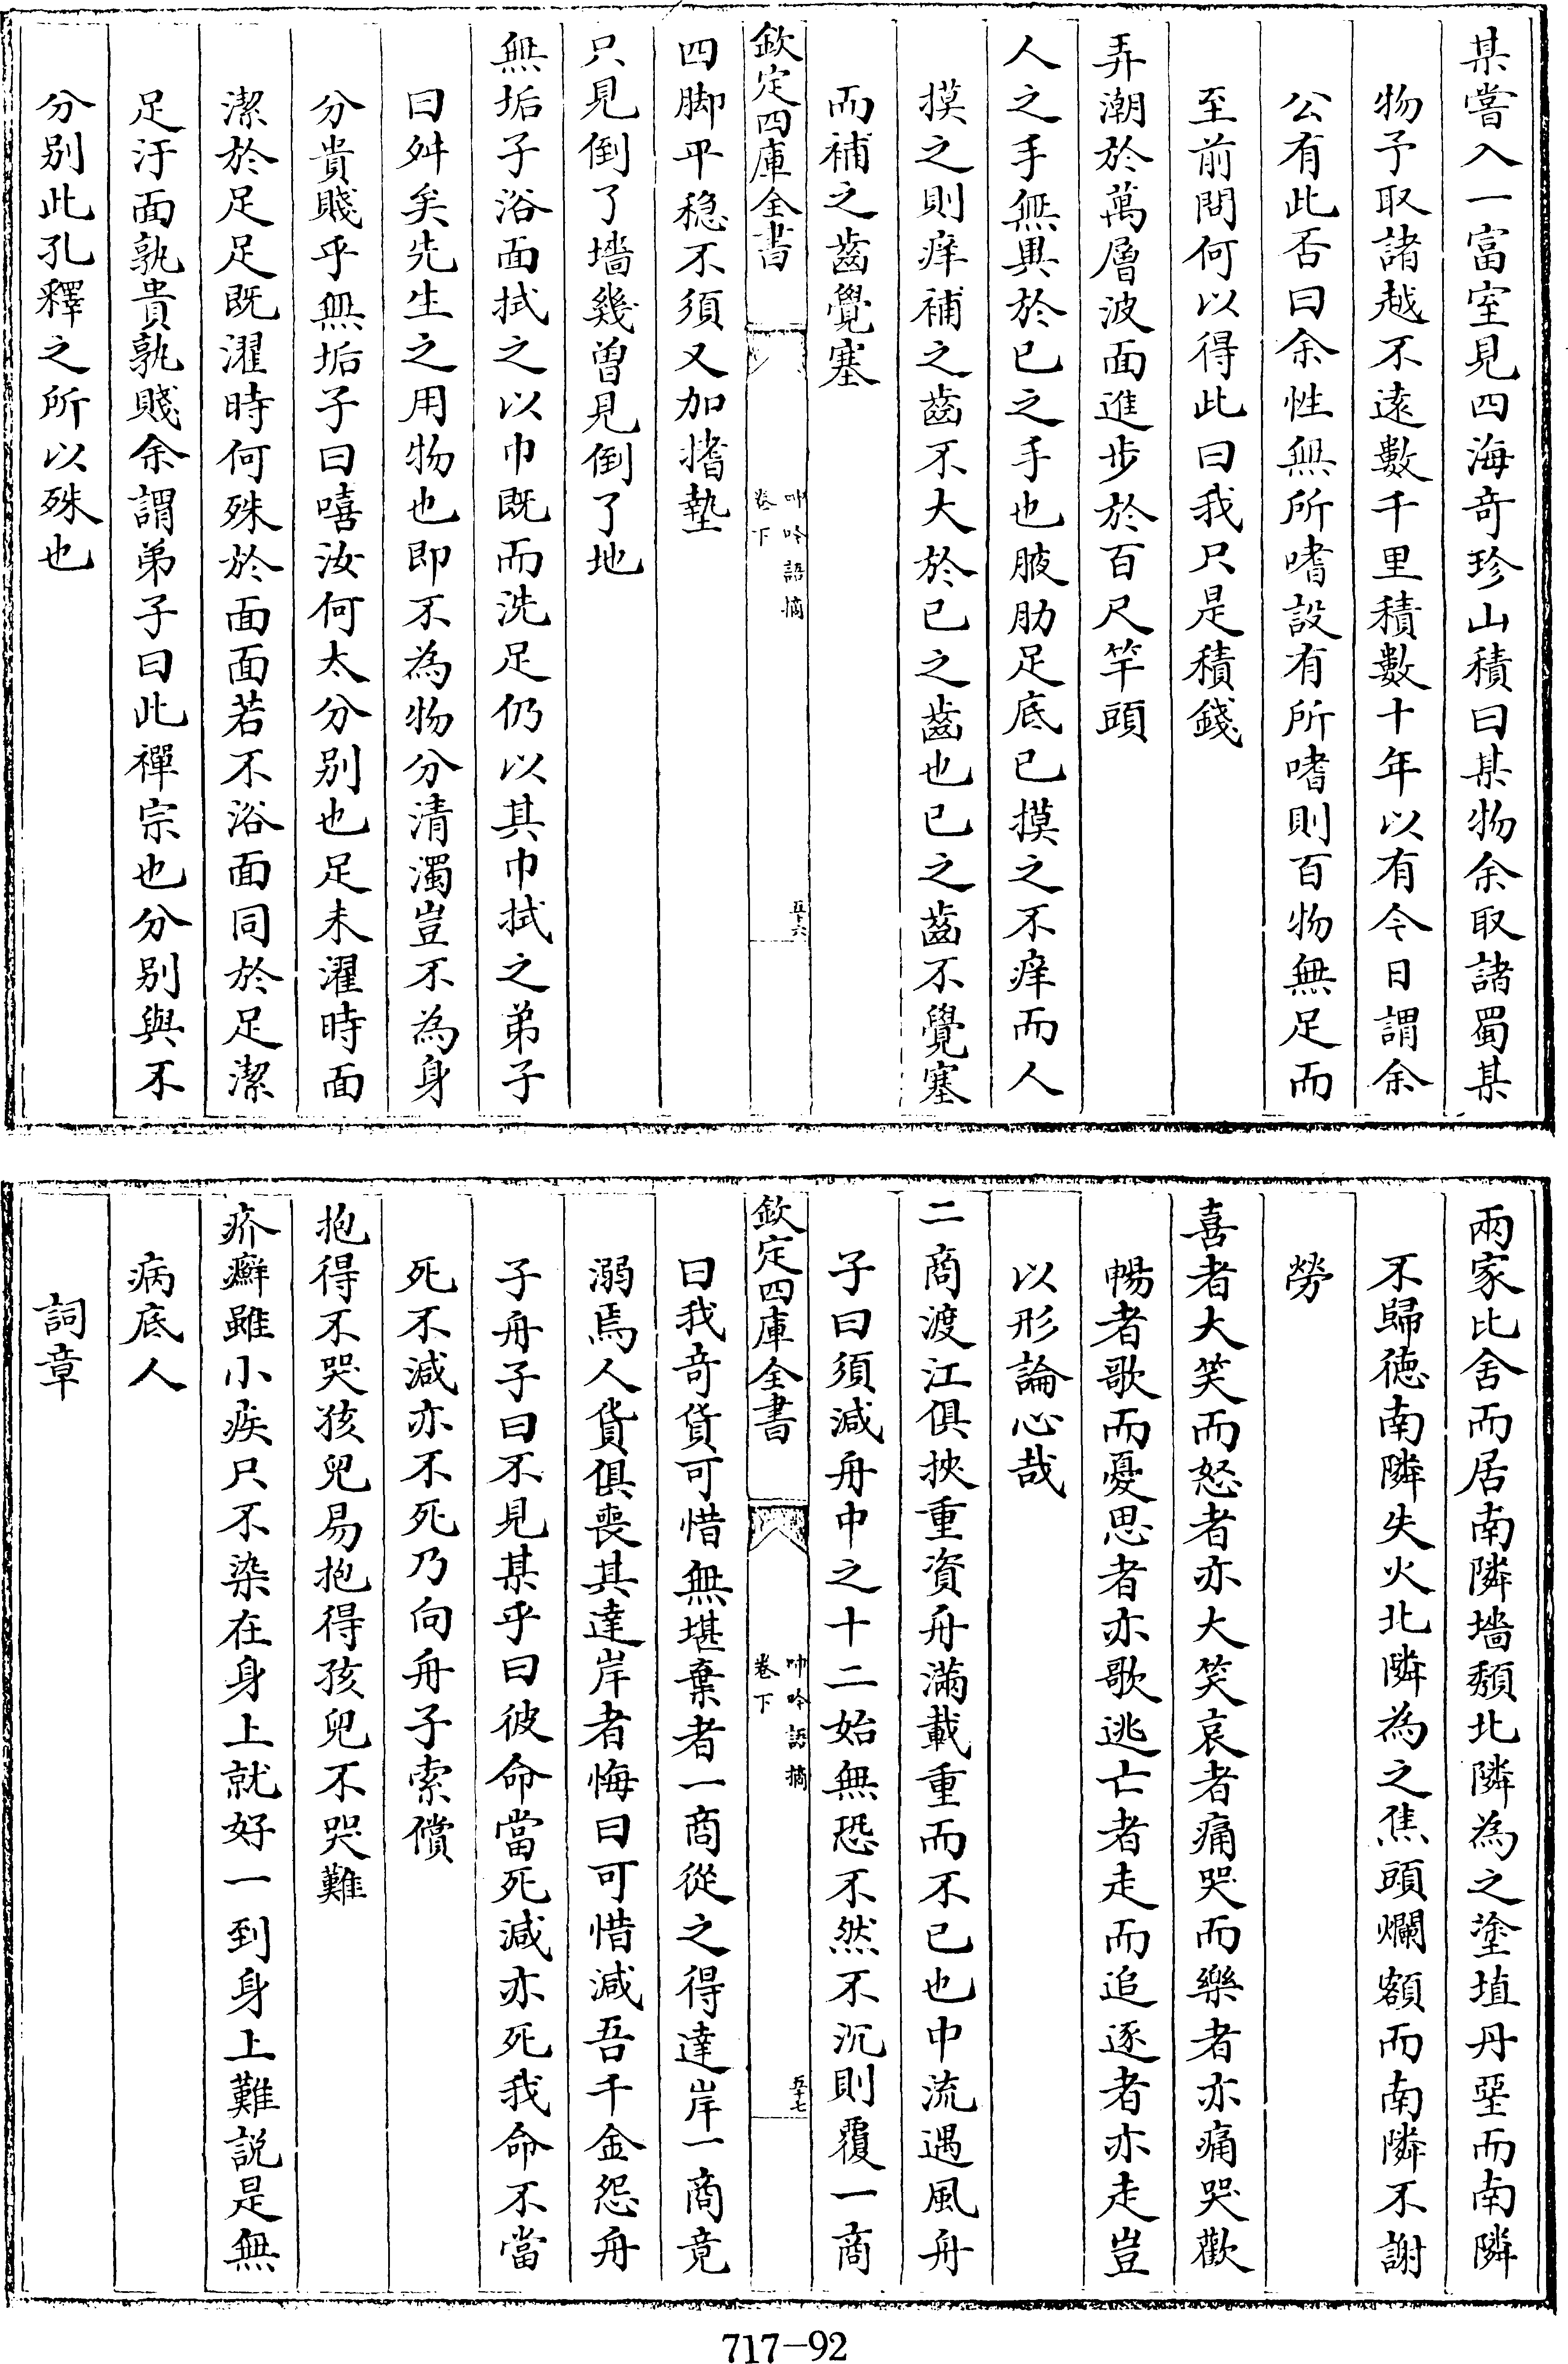 某嘗入一富室見四海奇珍山積曰某物余取諸蜀某
物予取諸越不遠數千里積數十年以有今日謂余
公有此否曰余性無所嗜設有所嗜則百物無足而
至前問何以得此曰我只是積錢
弄潮於萬層波面進步於百尺竿頭
人之手無異於已之手也腋肋足底已摸之不痒而人
摸之則痒補之齒不大於已之齒也已之齒不覺塞
而補之齒覺塞
欽定四庫全書
呻吟語摘
卷下
五十六
四脚平穩不須又加揝墊
只見倒了墻幾曾見倒了地
無垢子浴面拭之以巾既而洗足仍以其巾拭之弟子
曰舛矣先生之用物也即不為物分清濁豈不為身
分貴賤乎無垢子曰嘻汝何太分别也足未濯時面
潔於足足既濯時何殊於面面若不浴面同於足潔
足汙面孰貴孰賤余謂弟子曰此禪宗也分别與不
分别此孔釋之所以殊也
兩家比舍而居南隣墻頽北隣為之塗埴丹堊而南隣
不歸徳南隣失火北隣為之焦頭爛額而南隣不謝
勞
喜者大笑而怒者亦大笑哀者痛哭而樂者亦痛哭歡
暢者歌而憂思者亦歌逃亡者走而追逐者亦走豈
以形論心哉
二商渡江俱挾重資舟滿載重而不已也中流遇風舟
子曰須減舟中之十二始無恐不然不沉則覆一商
欽定四庫全書
呻吟語摘
卷下
五十七
曰我奇貨可惜無堪棄者一商從之得達岸一商竟
溺焉人貨俱喪其達岸者悔曰可惜減吾千金怨舟
子舟子曰不見某乎曰彼命當死減亦死我命不當
死不減亦不死乃向舟子索償
抱得不哭孩兒易抱得孩兒不哭難
疥癬雖小疾只不染在身上就好一到身上難説是無
病底人
詞章
717-92